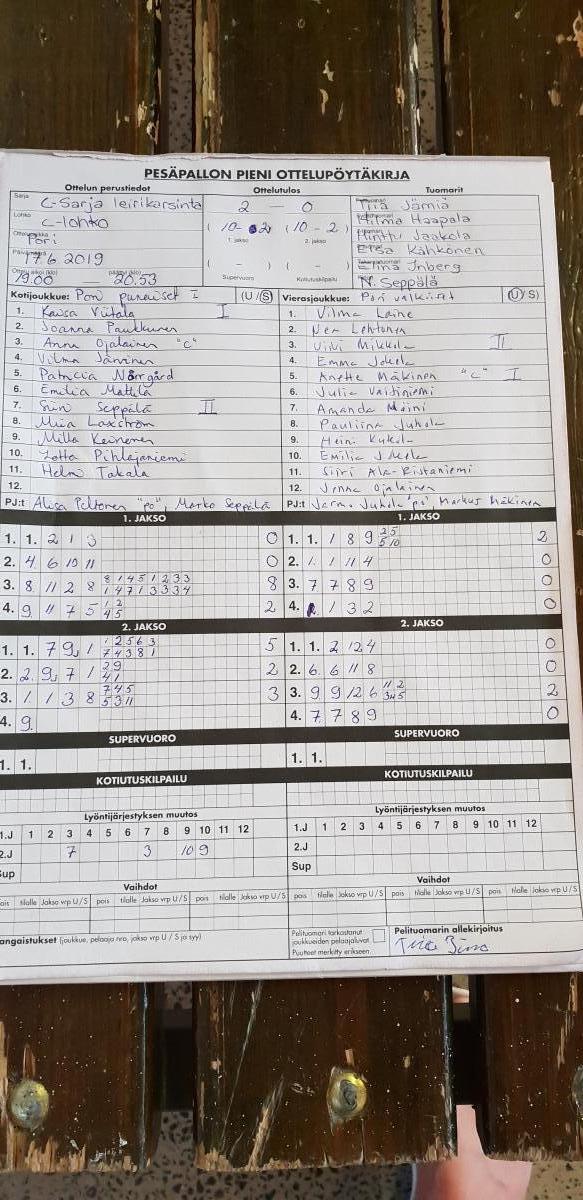 PESÄPALLON PIENI OTTELUPÖYTÄKIRJA
Ottelun perustiedot Ottelutulos Tuomarit
Sarja C-Sarja leirikarsinta 2 - 0 Tiia Jämiä
Lohko C-lohko (10-2) (10-2) Hilma Haapala
1. jakso 2. jakso
Pori Jaakola
17.6.2019 ( - ) ( - ) Kähkönen
19.00 — 20.53 Supervuoro Kotiutuskilpailu Elina Inberg
N. Seppälä
Kotijoukkue: Pori punaiset I (U/S) Vierasjoukkue: Pori valkoiset (U/S)
1. Kaisa Viitala I 1. Vilma Laine
2. Joanna Paukkunen 2. Lehtonen
3. Anna Ojalainen "c" 3. Viivi Mikkola II
4. Vilma Järvinen 4. Emma Jokela
5. Patricia Norrgård 5. Anette Mäkinen "c" I
6. Emilia Mattila 6. Julia
7. Siiri Seppälä II 7. Amanda Mäini
8. Miia Laxström 8. Pauliina Juhola
9. Milla Keinenen 9. Heini
10. Lotta Pihlajaniemi 10. Emilia
11. Helmi Takala 11. Siiri Ala-Ristaniemi
12. 12. Jenna Ojalainen
PJ:t Alisa Peltonen "po", Marko Seppälä PJ:t Jarmo Juhola "po" Markus Mäkinen
1. JAKSO 1. JAKSO
1. 1. 2 1 3 0 1. 1. 1 8 9 2 5 2
5 10
2. 4 6 10 11 0 2. 1 1 11 4 0
3. 8 11 2 8 8 1 4 5 1 2 3 3 8 3. 7 7 8 9 0
1 4 7 1 3 3 3 4
4. 9 11 7 5 1 2 2 4. 1 3 2 0
4 5
2. JAKSO 2. JAKSO
1. 1. 7 9 1 1 2 5 6 3 5 1. 1. 2 12 4 0
7 4 3 8 1
2. 2 9 7 1 2 9 2 2. 6 6 11 8 0
4 1
3. 1 1 3 8 7 4 5 3 3. 9 9 12 6 11 2 2
5 3 11
4. 9 4. 7 7 8 9 0
SUPERVUORO SUPERVUORO
1. 1. 1. 1.
KOTIUTUSKILPAILU KOTIUTUSKILPAILU
Lyöntijärjestyksen muutos Lyöntijärjestyksen muutos
1.J 1 2 3 4 5 6 7 8 9 10 11 12 1.J 1 2 3 4 5 6 7 8 9 10 11 12
2.J 7 3 10 9 2.J
Sup Sup
Vaihdot Vaihdot
pois tilalle Jakso vrp U/S pois tilalle Jakso vrp U/S pois tilalle Jakso vrp U/S pois tilalle Jakso vrp U/S pois tilalle Jakso vrp U/S pois tilalle Jakso vrp U/S
angaistukset (joukkue, pelaaja nro, jakso vrp U / S ja syy) Pelituomari tarkastanut Pelituomarin allekirjoitus
joukkueiden pelaajaluvat
Puutteet merkitty erikseen.